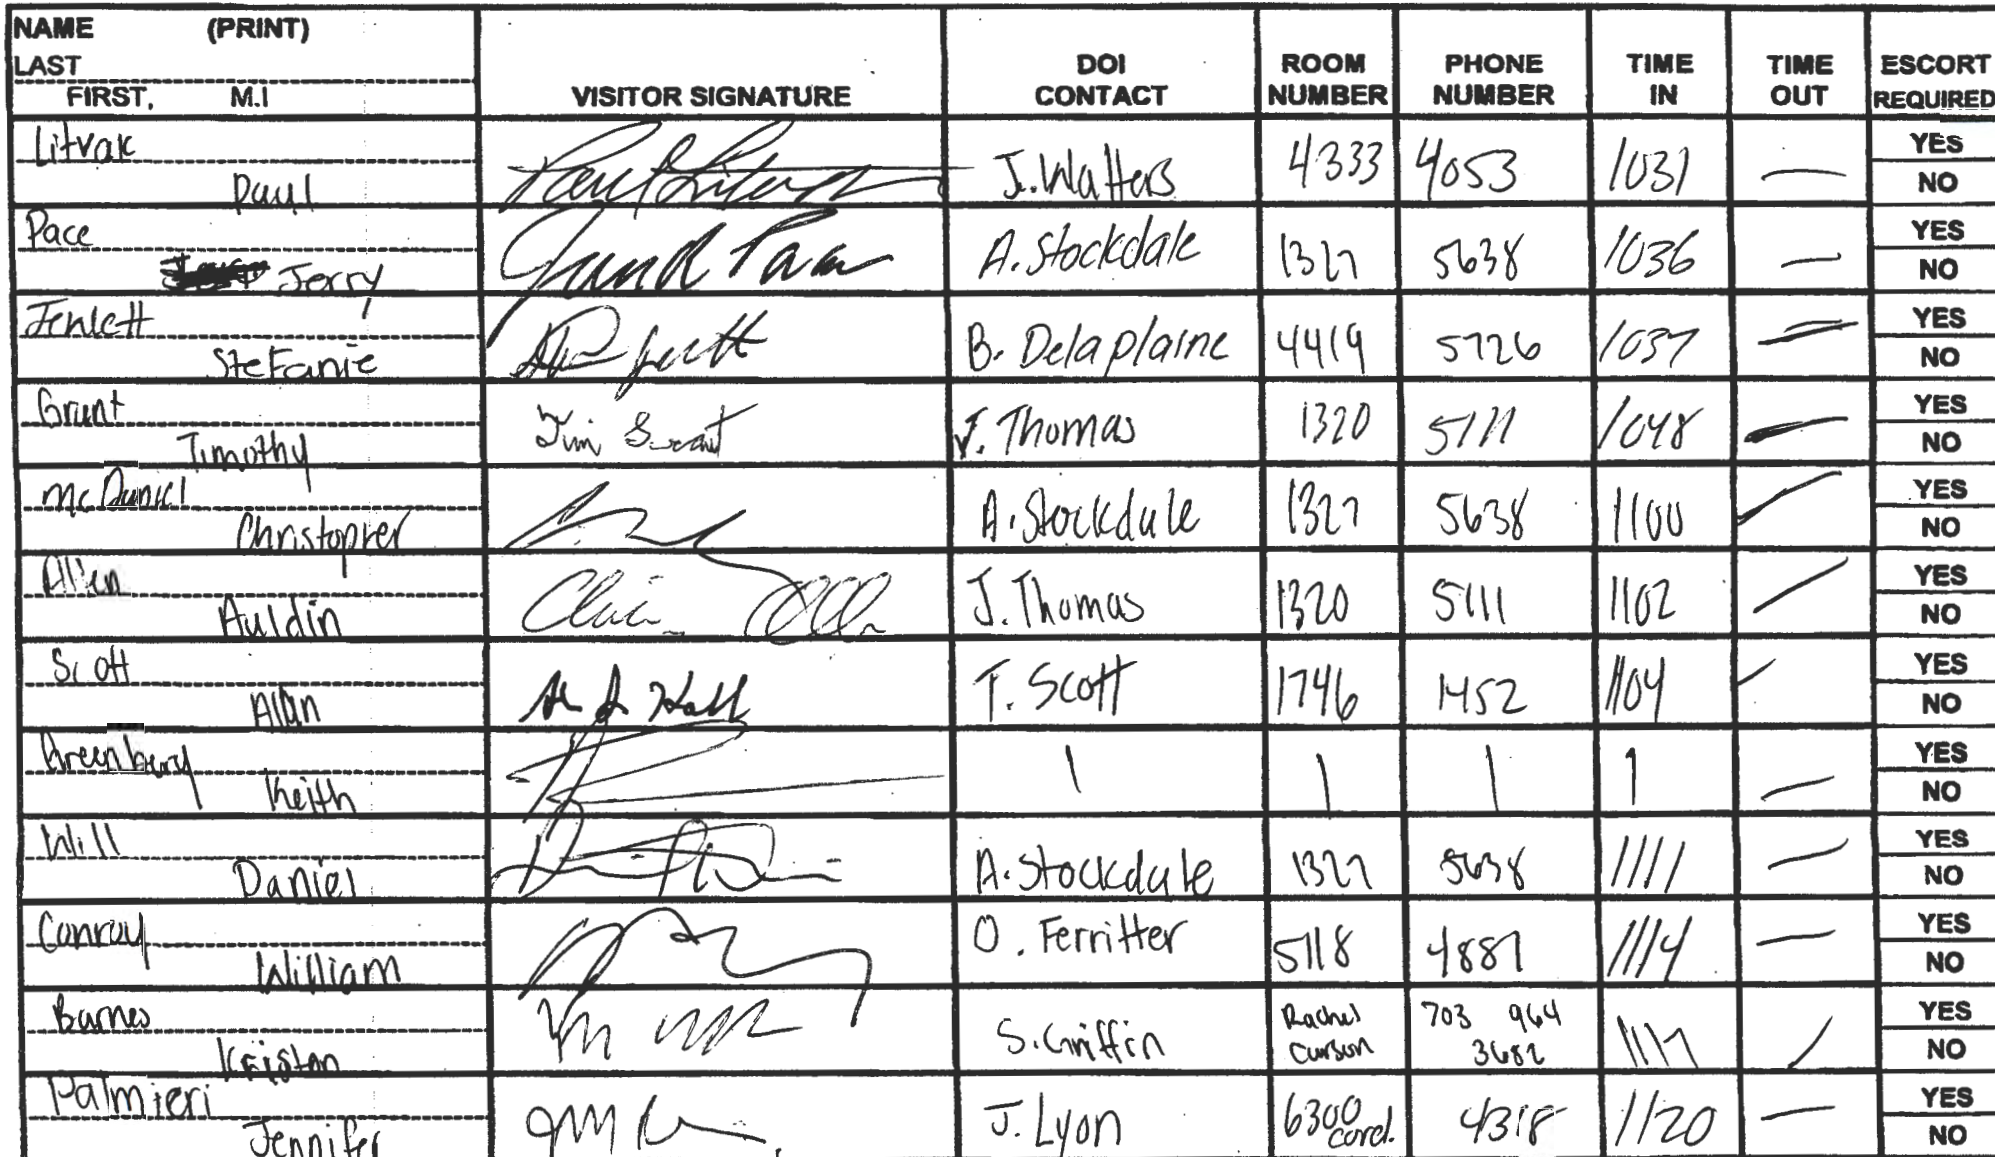 NAME (PRINT)
LAST
FIRST, M.I
VISITOR SIGNATURE
DOI CONTACT
ROOM NUMBER
PHONE NUMBER
TIME IN
TIME OUT
ESCORT REQUIRED
Litvak
Paul J. Walters 4333 4053 1031 — YES NO
Pace
Jerry A. Stockdale 1327 5638 1036 — YES NO
Stefanie B. Delaplaine 4419 5726 1037 — YES NO
Grant
Timothy Tim Grant J. Thomas 1320 5111 1048 — YES NO
McDaniel
Christopher A. Stockdale 1327 5638 1100 YES NO
Allen
Auldin J. Thomas 1320 5111 1102 YES NO
Scott
Alan T. Scott 1746 1452 1104 YES NO
Greenberg
Keith | | | | — YES NO
Will
Daniel A. Stockdale 1327 5638 1111 — YES NO
Conroy
William O. Ferritter 5118 4887 1114 — YES NO
Barnes
Kristen S. Griffin Rachel Carson 703 964 3682 1117 YES NO
Palmieri
Jennifer J. Lyon 6300 4318 1120 — YES NO